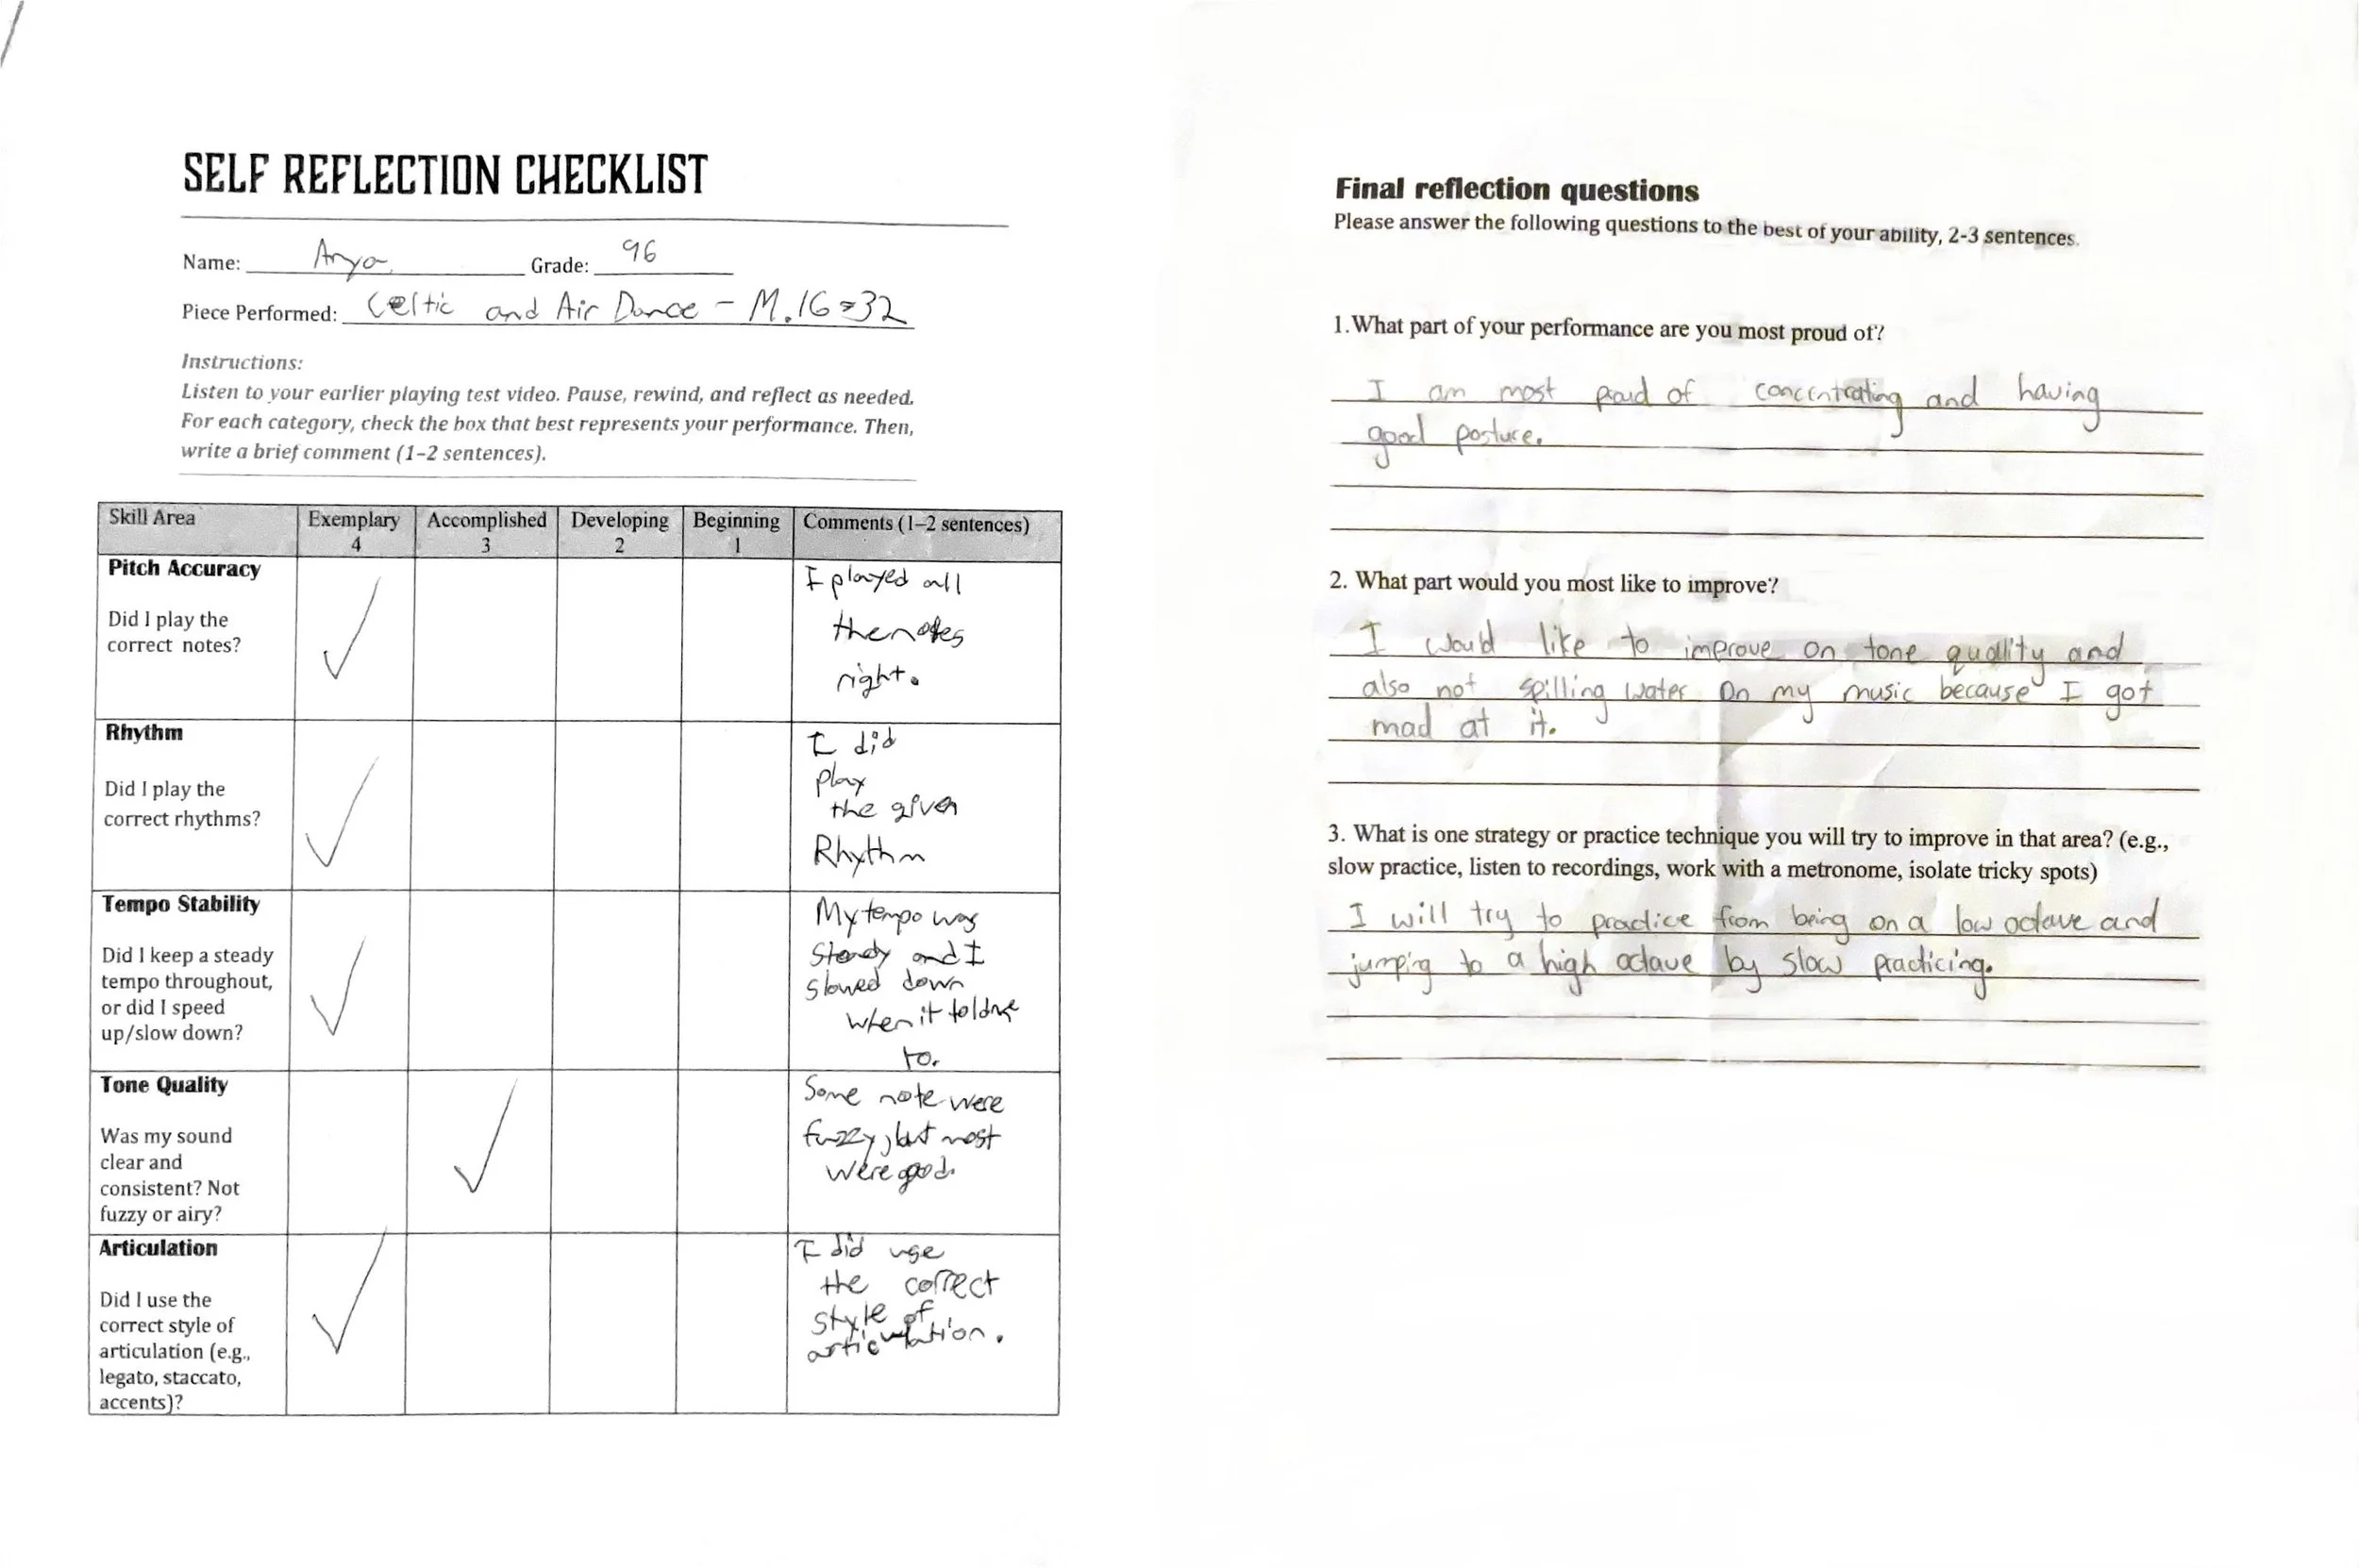 SELF REFLECTION CHECKLIST
Name: Arya Grade: 96
Piece Performed: Celtic and Air Dance - M.16-32
Instructions:
Listen to your earlier playing test video. Pause, rewind, and reflect as needed.
For each category, check the box that best represents your performance. Then,
write a brief comment (1–2 sentences).
Skill Area Exemplary 4 Accomplished 3 Developing 2 Beginning 1 Comments (1–2 sentences)
Pitch Accuracy
Did I play the
correct notes?
✓
I played all
the notes
right.
Rhythm
Did I play the
correct rhythms?
✓
I did
play
the given
Rhythm
Tempo Stability
Did I keep a steady
tempo throughout,
or did I speed
up/slow down?
✓
My tempo was
Steady and I
slowed down
when it told me
to.
Tone Quality
Was my sound
clear and
consistent? Not
fuzzy or airy?
✓
Some note were
fuzzy, but most
were good.
Articulation
Did I use the
correct style of
articulation (e.g.,
legato, staccato,
accents)?
✓
I did use
the correct
style of
articulation.
Final reflection questions
Please answer the following questions to the best of your ability, 2-3 sentences.
1. What part of your performance are you most proud of?
I am most proud of concentrating and having
good posture.
2. What part would you most like to improve?
I would like to improve on tone quality and
also not spilling water on my music because I got
mad at it.
3. What is one strategy or practice technique you will try to improve in that area? (e.g.,
slow practice, listen to recordings, work with a metronome, isolate tricky spots)
I will try to practice from being on a low octave and
jumping to a high octave by slow practicing.